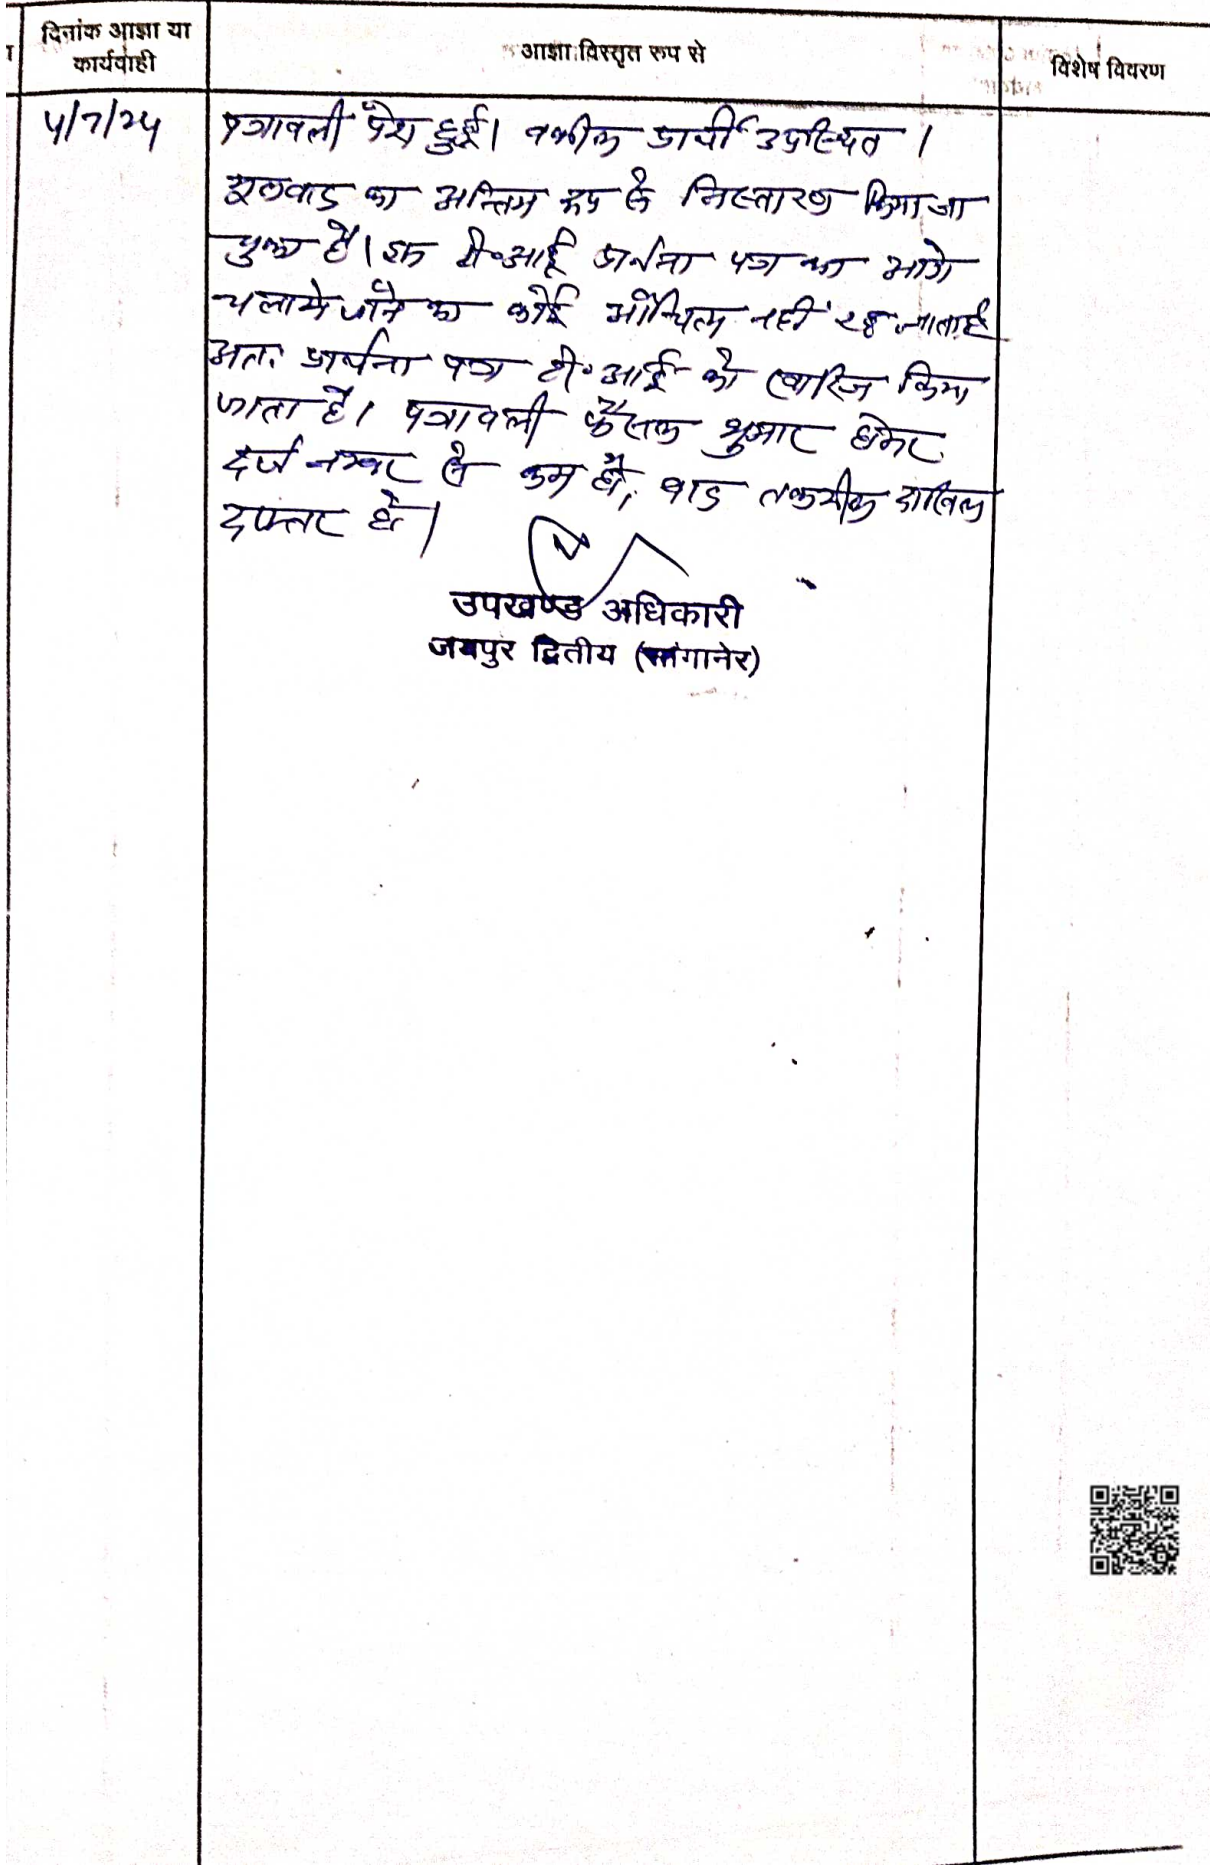 दिनांक आज्ञा या
कार्यवाही
आज्ञा विस्तृत रूप से
विशेष विवरण
पत्रावली पेश हुई। वकील प्रार्थी उपस्थित ।
मूलवाद का अन्तिम रूप से निस्तारण किया जा
चुका है। इस टी॰आई प्रार्थना पत्र का आगे
चलाये जाने का कोई औचित्य नहीं रह जाता है
अतः प्रार्थना पत्र टी॰आई को खारिज किया
जाता है। पत्रावली फैसल शुमार होकर
दर्ज नम्बर से कम हो, बाद तकमील दाखिल
दफ्तर हो।
उपखण्ड अधिकारी
जयपुर द्वितीय (सांगानेर)